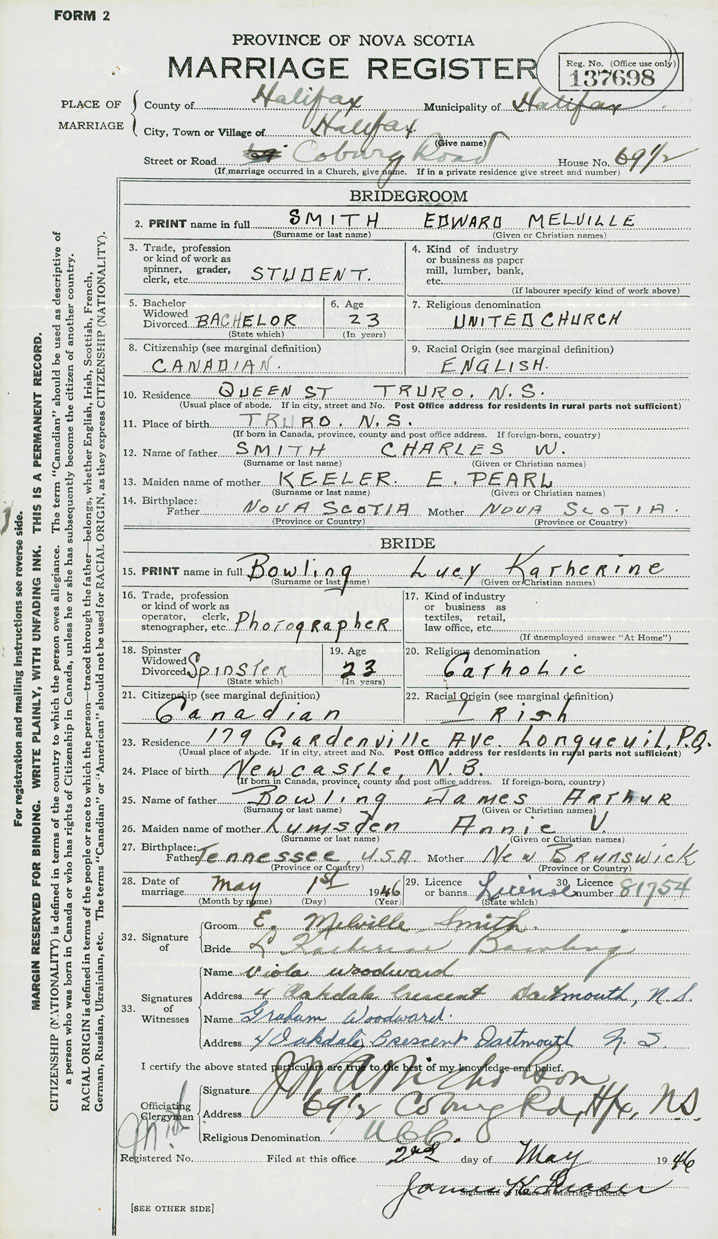 FORM 2
PROVINCE OF NOVA SCOTIA
MARRIAGE REGISTER
Reg. No. (Office use only)
137698
PLACE OF MARRIAGE
County of Halifax Municipality of Halifax
City, Town or Village of Halifax
(Give name)
Street or Road Coburg Road House No. 69 1/2
(If marriage occurred in a Church, give name. If in a private residence give street and number)
BRIDEGROOM
2. PRINT name in full SMITH EDWARD MELVILLE
(Surname or last name) (Given or Christian names)
3. Trade, profession or kind of work as spinner, grader, clerk, etc. STUDENT.
4. Kind of industry or business as paper mill, lumber, bank, etc.
(If labourer specify kind of work above)
5. Bachelor Widowed Divorced BACHELOR
(State which)
6. Age 23
(In years)
7. Religious denomination
UNITED CHURCH
8. Citizenship (see marginal definition)
CANADIAN.
9. Racial Origin (see marginal definition)
ENGLISH.
10. Residence QUEEN ST TRURO. N.S.
(Usual place of abode. If in city, street and No. Post Office address for residents in rural parts not sufficient)
11. Place of birth TRURO. N.S.
(If born in Canada, province, county and post office address. If foreign-born, country)
12. Name of father SMITH CHARLES W.
(Surname or last name) (Given or Christian names)
13. Maiden name of mother KEELER. E. PEARL
(Surname or last name) (Given or Christian names)
14. Birthplace: Father NOVA SCOTIA Mother NOVA SCOTIA.
(Province or Country) (Province or Country)
BRIDE
15. PRINT name in full Bowling Lucy Katherine
(Surname or last name) (Given or Christian names)
16. Trade, profession or kind of work as operator, clerk, stenographer, etc. Photographer
17. Kind of industry or business as textiles, retail, law office, etc.
(If unemployed answer "At Home")
18. Spinster Widowed Divorced Spinster
(State which)
19. Age 23
(In years)
20. Religious denomination
Catholic
21. Citizenship (see marginal definition)
Canadian
22. Racial Origin (see marginal definition)
Irish
23. Residence 179 Gardenville Ave. Longueuil, P.Q.
(Usual place of abode. If in city, street and No. Post Office address for residents in rural parts not sufficient)
24. Place of birth Newcastle, N.B.
(If born in Canada, province, county and post office address. If foreign-born, country)
25. Name of father Bowling James Arthur
(Surname or last name) (Given or Christian names)
26. Maiden name of mother Lumsden Annie V.
(Surname or last name) (Given or Christian names)
27. Birthplace: Father Tennessee, U.S.A. Mother New Brunswick
(Province or Country) (Province or Country)
28. Date of marriage May 1st 1946
(Month by name) (Day) (Year)
29. Licence or banns License
(State which)
30. Licence number 81754
32. Signature of
Groom E. Melville Smith.
Bride L Katherine Bowling
33. Signatures of Witnesses
Name Viola Woodward
Address 4 Oakdale Crescent Dartmouth, N.S.
Name Graham Woodward.
Address 4 Oakdale Crescent Dartmouth N.S.
I certify the above stated particulars are true to the best of my knowledge and belief.
Officiating Clergyman
Signature Nicholson
Address 69 1/2 Coburg Rd, Hfx, N.S.
Religious Denomination U.C.C.
Registered No. Filed at this office 2nd day of May 1946
James H. Fraser
Signature of Issuer of Marriage Licence
[SEE OTHER SIDE]
For registration and mailing instructions see reverse side.
MARGIN RESERVED FOR BINDING. WRITE PLAINLY, WITH UNFADING INK. THIS IS A PERMANENT RECORD.
CITIZENSHIP (NATIONALITY) is defined in terms of the country to which the person owes allegiance. The term "Canadian" should be used as descriptive of
a person who was born in Canada or who has rights of Citizenship in Canada, unless he or she has subsequently become the citizen of another country.
RACIAL ORIGIN is defined in terms of the people or race to which the person—traced through the father—belongs, whether English, Irish, Scottish, French,
German, Russian, Ukrainian, etc. The terms "Canadian" or "American" should not be used for RACIAL ORIGIN, as they express CITIZENSHIP (NATIONALITY).